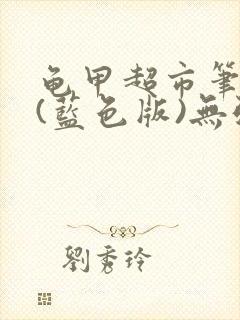 龟甲超市筆
(藍色版)無
劉秀玲